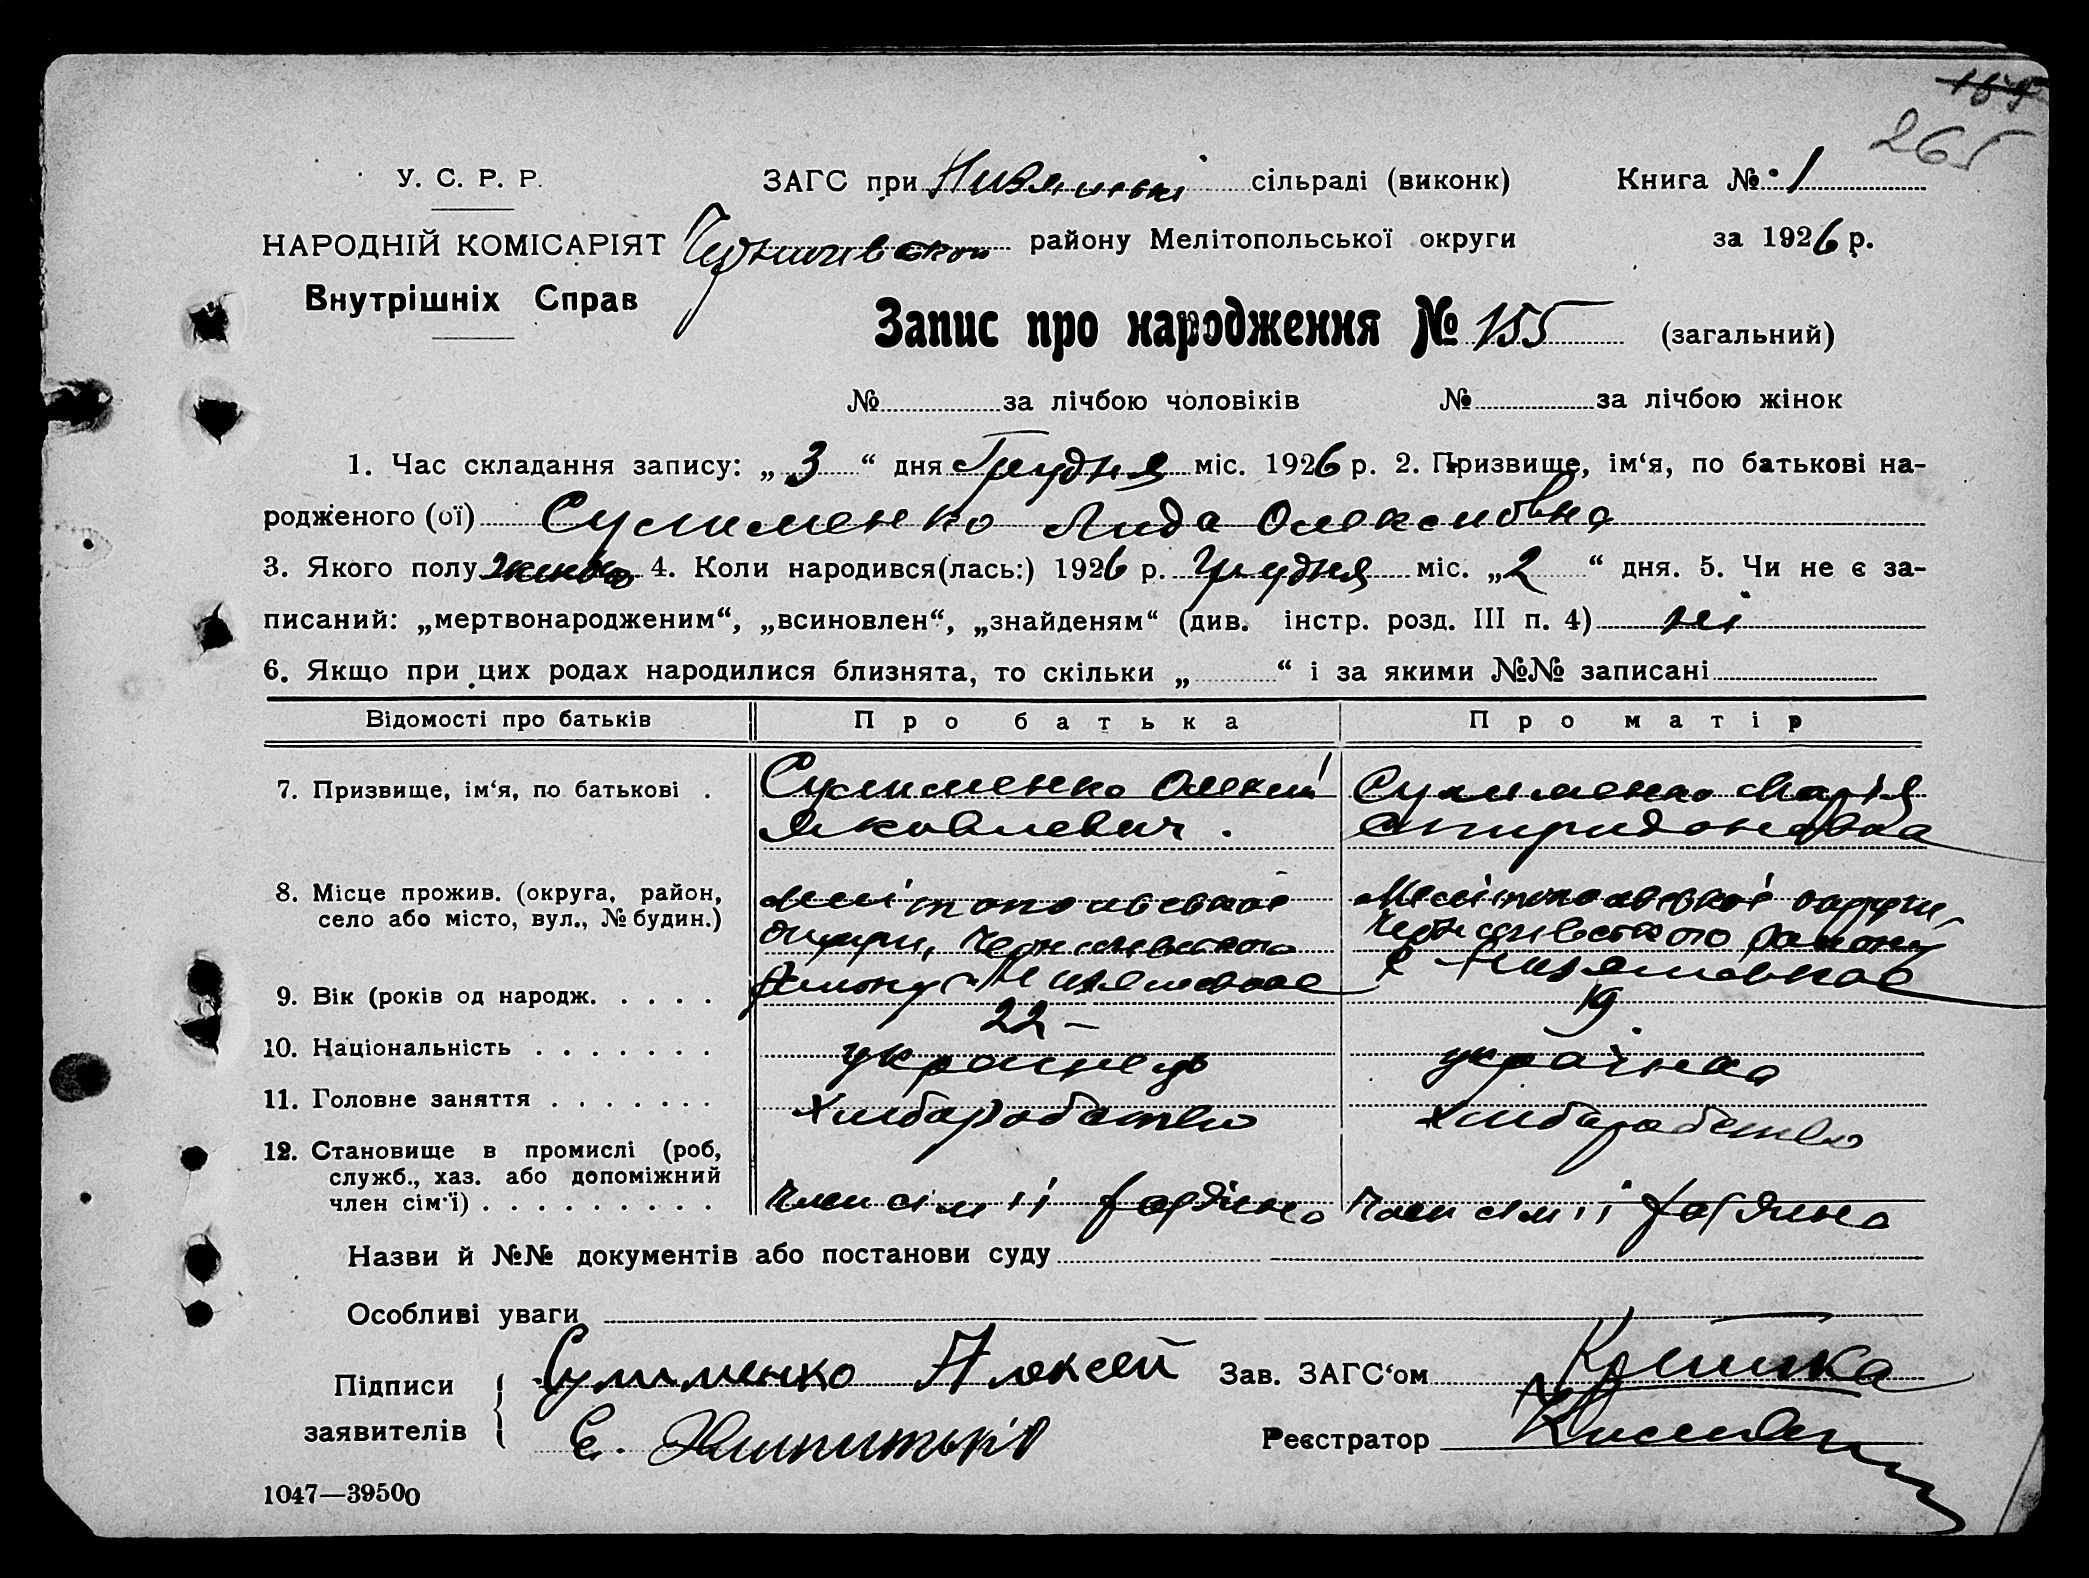 265
У. С. Р. Р. ЗАГС при сільраді (виконк) Книга № 1
НАРОДНІЙ КОМІСАРІЯТ району Мелітопольської округи за 1926 р.
Внутрішніх Справ
Запис про народження № 155 (загальний)
№ за лічбою чоловіків № за лічбою жінок
1. Час складання запису: „ 3 “ дня Грудня міс. 1926 р. 2. Призвище, ім‘я, по батькові на-
родженого (ої) Сулименко Лида Олексиовна
3. Якого полу 4. Коли народився(лась:) 1926 р. Грудня міс. „2 “ дня. 5. Чи не є за-
писаний: „мертвонародженим“, „всиновлен“, „знайденям“ (див. інстр. розд. III п. 4) ні
6. Якщо при цих родах народилися близнята, то скільки „ “ і за якими №№ записані
Відомості про батьків Про батька Про матір
7. Призвище, ім‘я, по батькові . Сулименко Олексій Сулименко Марія
Яковлевич. Спиридоновна
8. Місце прожив. (округа, район, Мелітопольської Мелітопольської округи,
село або місто, вул., № будин.) округи,
району с. с.
9. Вік (років од народж. . . . . 22 19
10. Національність . . . . . . . українець українка
11. Головне заняття . . . . . . . Хлібаробство Хлібаробство
12. Становище в промислі (роб,
служб., хаз. або допоміжний
член сім‘ї) . . . . . . . . . Член сімії Член сімії
Назви й №№ документів або постанови суду
Особливі уваги
Підписи Сулименко Алексей Зав. ЗАГС‘ом
заявителів Є. Реєстратор
1047—39500